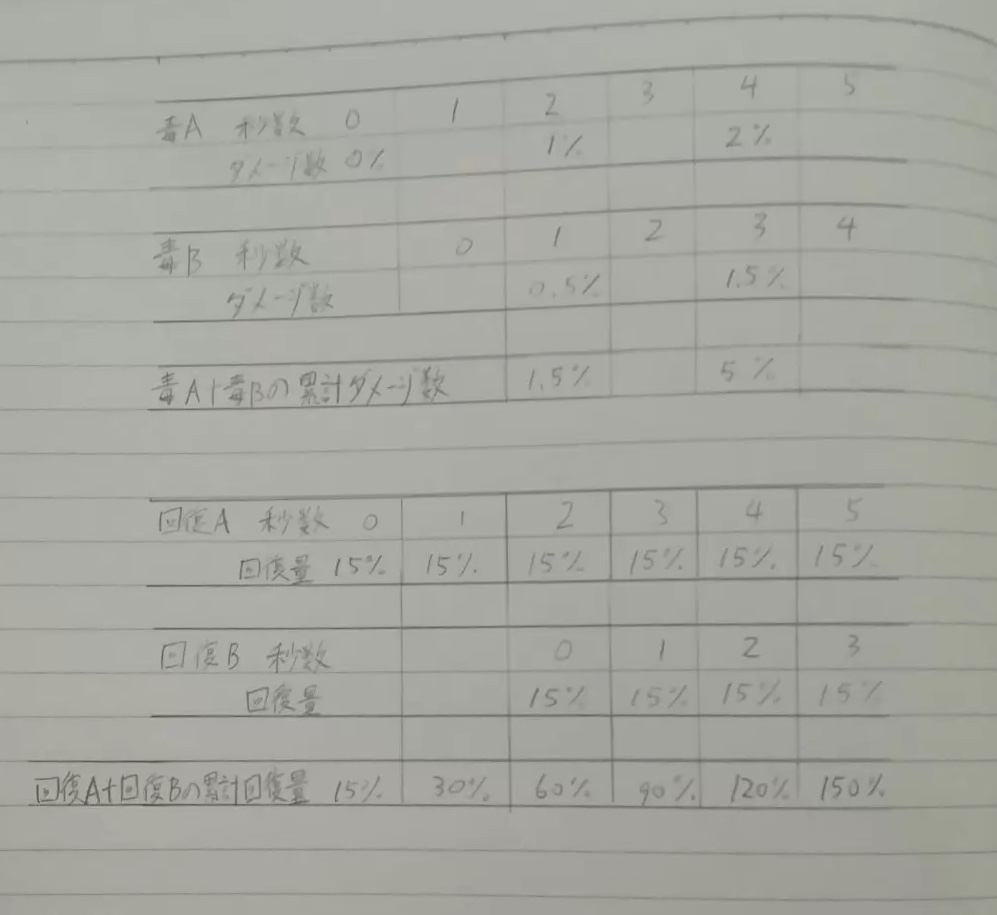 毒A 秒数 0 1 2 3 4 5
ダメージ数 0% 1% 2%
毒B 秒数 0 1 2 3 4
ダメージ数 0.5% 1.5%
毒A+毒Bの累計ダメージ数 1.5% 5%
回復A 秒数 0 1 2 3 4 5
回復量 15% 15% 15% 15% 15% 15%
回復B 秒数 0 1 2 3
回復量 15% 15% 15% 15%
回復A+回復Bの累計回復量 15% 30% 60% 90% 120% 150%